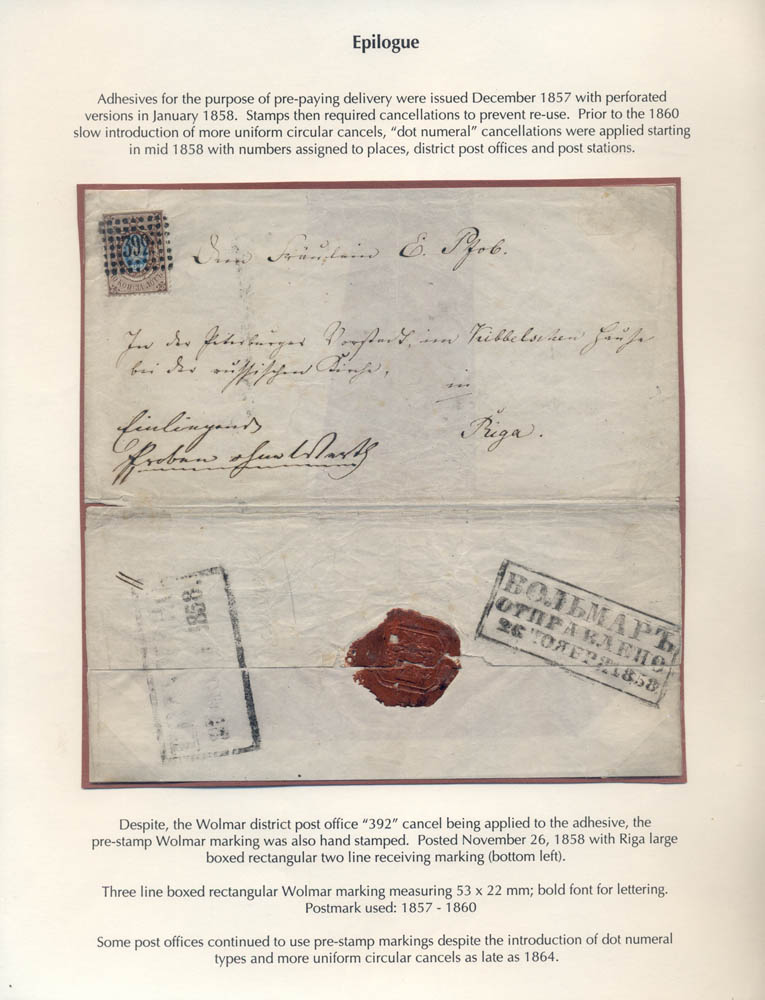 Epilogue
Adhesives for the purpose of pre-paying delivery were issued December 1857 with perforated
versions in January 1858. Stamps then required cancellations to prevent re-use. Prior to the 1860
slow introduction of more uniform circular cancels, “dot numeral” cancellations were applied starting
in mid 1858 with numbers assigned to places, district post offices and post stations.
392
Fräulein E. Pfob.
In der Petersburger Vorstadt, im Kübbelschen Hause
bei der russischen Kirche,
in
Riga.
Einliegend
Proben ohne Werth
1858.
ВОЛЬМАРЪ
ОТПРАВЛЕНО
26 НОЯБРЯ 1858
Despite, the Wolmar district post office “392” cancel being applied to the adhesive, the
pre-stamp Wolmar marking was also hand stamped. Posted November 26, 1858 with Riga large
boxed rectangular two line receiving marking (bottom left).
Three line boxed rectangular Wolmar marking measuring 53 x 22 mm; bold font for lettering.
Postmark used: 1857 - 1860
Some post offices continued to use pre-stamp markings despite the introduction of dot numeral
types and more uniform circular cancels as late as 1864.